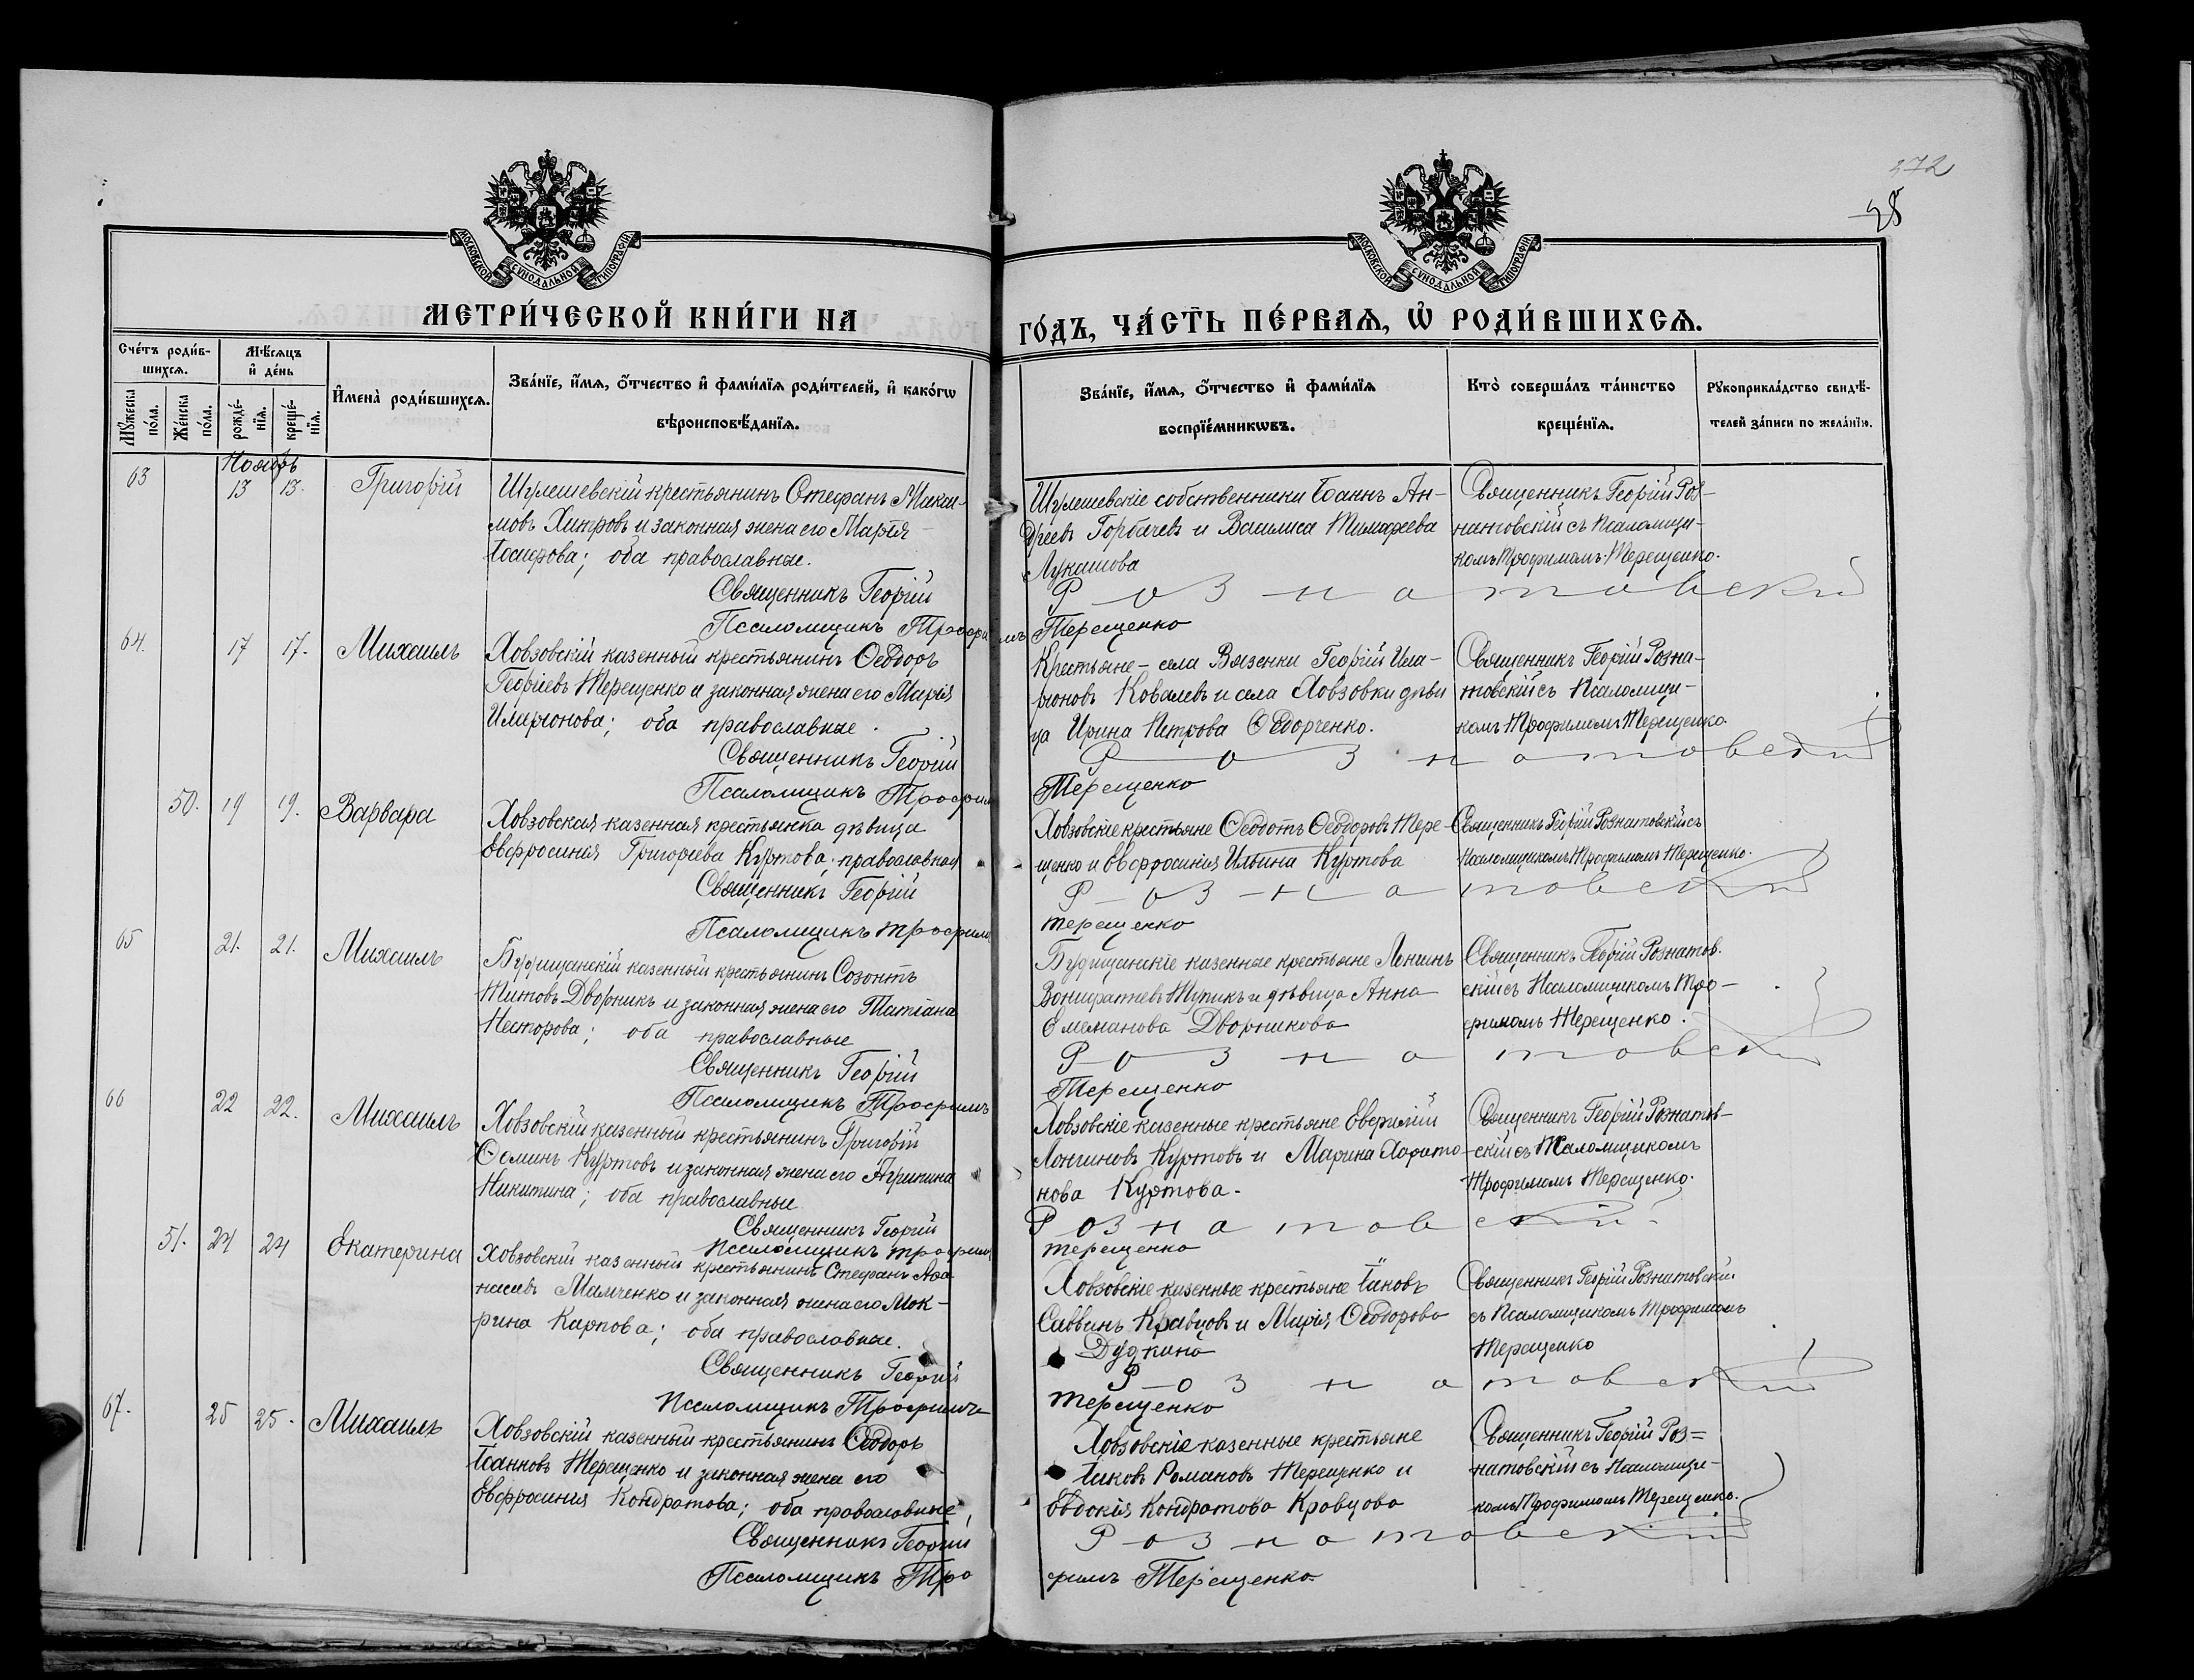 372
28
МОСКОВСКОЙ СѴНОДАЛЬНОЙ ТИПОГРАФІИ
МОСКОВСКОЙ СѴНОДАЛЬНОЙ ТИПОГРАФІИ
МЕТРИ́ЧЕСКОЙ КНИ́ГИ НА
ГО́ДЪ, ЧА́СТЬ ПЕ́РВАЯ, Ѡ҆ РОДИ́ВШИХСѦ.
Сче́тъ роди́в-
шихсѧ.
Мѣ́сѧцъ
и҆ де́нь
Мꙋ́жеска
по́ла.
Же́нска
по́ла.
рожде́-
нїѧ.
креще́-
нїѧ.
И҆мена̀ роди́вшихсѧ.
Зва́нїе, и҆́мѧ, ѻ҆́тчество и҆ фамі́лїѧ роди́телей, и҆ како́гѡ
вѣроисповѣ́данїѧ.
Зва́нїе, и҆́мѧ, ѻ҆́тчество и҆ фамі́лїѧ
воспрїе́мникѡвъ.
Кто̀ соверша́лъ та́инство
креще́нїѧ.
Рꙋкоприкла́дство свидѣ́-
телей за́писи по жела́нїю.
Ноябрь
63 13 13. Григорій
Шулешевскій крестьянинъ Стефанъ Макси-
мовъ Хитровъ и законная жена его Марія
Іосифова; оба православные.
Священникъ Георгій
Псаломщикъ Трофимъ
Шулешевскіе собственники Іоаннъ Ан-
дреевъ Горбачевъ и Василиса Тимофеева
Лукашова
Розматовскій
Терещенко
Священникъ Георгій Роз-
натовскій съ псаломщи-
комъ Трофимомъ Терещенко.
64. 17 17. Михаилъ
Ховзовскій казенный крестьянинъ Ѳеодоръ
Георгіевъ Терещенко и законная жена его Марія
Иларіонова; оба православные.
Священникъ Георгій
Псаломщикъ Трофим
Крестьяне – села Вязенки Георгій Ила-
ріоновъ Ковалевъ и села Ховзовки дѣви
ца Ирина Петрова Ѳедорченко.
Розмнатовскій
Терещенко
Священникъ Георгій Розна-
товскій съ псаломщи-
комъ Трофимомъ Терещенко
50. 19 19. Варвара
Ховзовская казенная крестьянка дѣвица
Евфросинія Григоріева Куртова; православная
Священникъ Георгій
Псаломщикъ Трофим
Ховзовскіе крестьяне Ѳеодотъ Ѳеодоровъ Тере-
щенко и Евфросинія Ильина Куртова
Розматовскій
Терещенко
Священникъ Георгій Рознатовскій съ
псаломщикомъ Трофимомъ Терещенко.
65 21. 21. Михаилъ
Будищанскій казенный крестьянинъ Созонтъ
Титовъ Дворникъ и законная жена его Татіана
Несторова; оба православные
Священникъ Георгій
Псаломщикъ Трофимъ
Будищанскіе казенные крестьяне Лонгинъ
Вонифатіевъ Тупикъ и дѣвица Анна
Емеманова Дворникова
Рознатовскій
Терещенко
Священникъ Георгій Рознатов-
скій съ псаломщикомъ Тро-
фимомъ Терещенко.
66 22 22. Михаилъ
Ховзовскій казенный крестьянинъ Григорій
Ѳоминъ Куртовъ и законная жена его Агрипина
Никитина; оба православные
Священникъ Георгій
Псаломщикъ Трофим
Ховзовскіе казенные крестьяне Евфимій
Лонгиновъ Куртовъ и Марина Харито-
нова Куртова.
Рознатовскій
Терещенко
Священникъ Георгій Рознатов-
скій съ псаломщикомъ
Трофимомъ Терещенко.
51. 24 24 Екатерина
Ховзовскій казенный крестьянинъ Стефанъ Аѳа
насіевъ Мамченко и законная жена его Мок-
рина Карпова; оба православные.
Священникъ Георгій
Псаломщикъ Трофимъ
Ховзовскіе казенные крестьяне Іаковъ
Саввинъ Кравцовъ и Марія Ѳеодорова
Дудкина
Рознатовскій
Терещенко
Священникъ Георгій Рознатовскій
съ псаломщикомъ Трофимомъ
Терещенко
67. 25 25. Михаилъ
Ховзовскій казенный крестьянинъ Ѳеодоръ
Іоанновъ Терещенко и законная жена его
Евфросинія Кондратова; оба православные,
Священникъ Георгій
Псаломщикъ Тро
Ховзовскіе казенные крестьяне
Іаковъ Романовъ Терещенко и
Евдокія Кондратова Кравцова
Рознатовскій
фимъ Терещенко
Священникъ Георгій Роз=
натовскій съ псаломщи-
комъ Трофимомъ Терещенко.